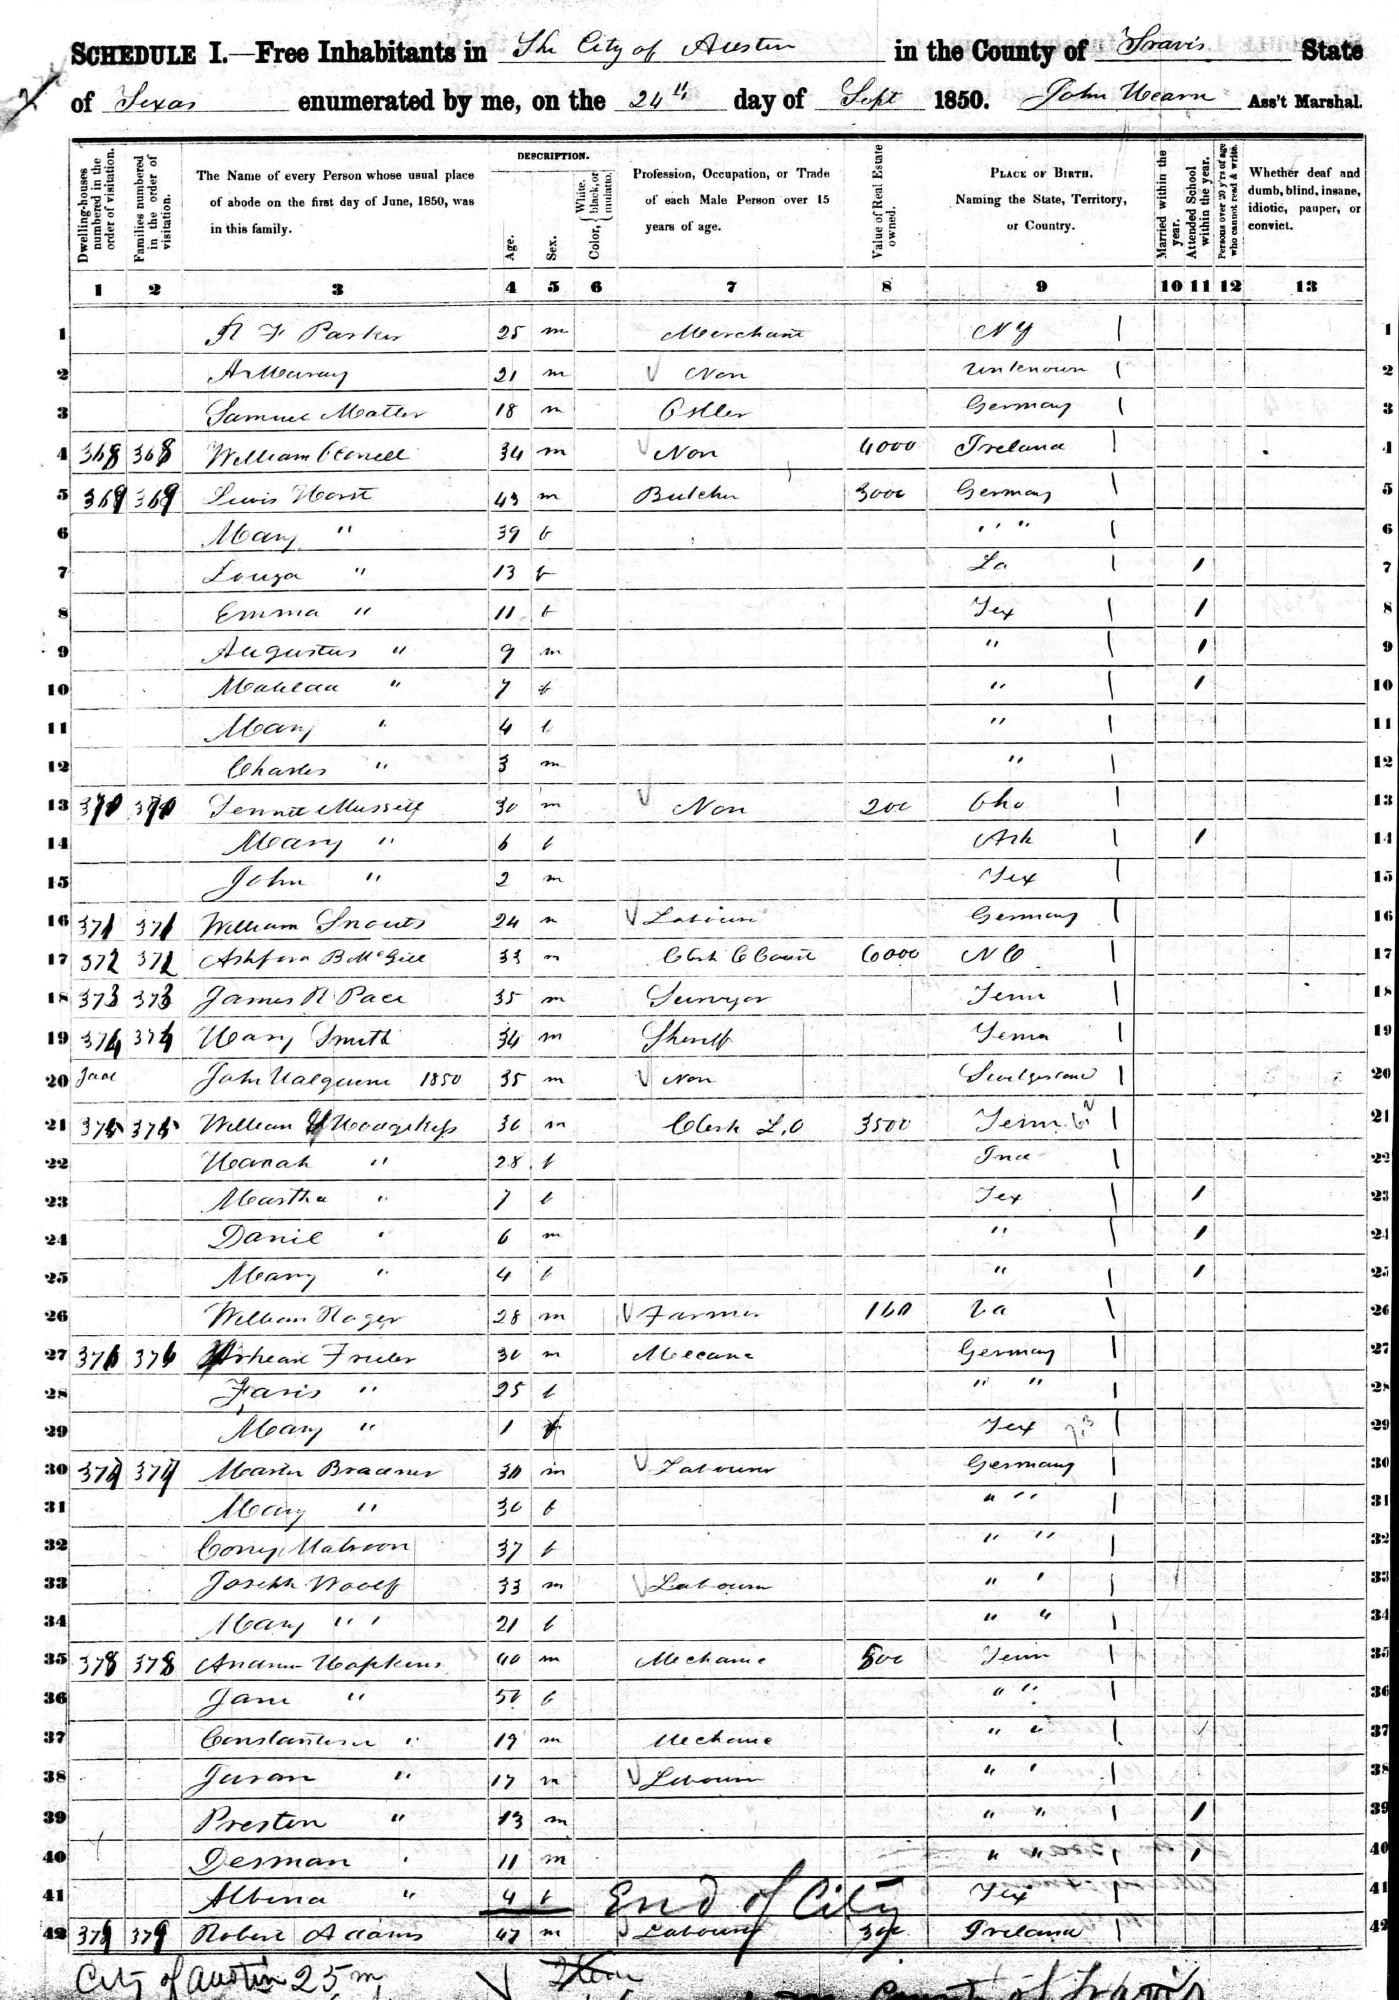 SCHEDULE I.—Free Inhabitants in The City of Austin in the County of Travis State
of Texas enumerated by me, on the 24th day of Sept 1850. John Hearn Ass't Marshal.
Dwelling-houses numbered in the order of visitation.
Families numbered in the order of visitation.
The Name of every Person whose usual place of abode on the first day of June, 1850, was in this family.
DESCRIPTION.
Age.
Sex.
Color, White, black, or mulatto.
Profession, Occupation, or Trade of each Male Person over 15 years of age.
Value of Real Estate owned.
PLACE OF BIRTH. Naming the State, Territory, or Country.
Married within the year.
Attended School within the year.
Persons over 20 y'rs of age who cannot read & write.
Whether deaf and dumb, blind, insane, idiotic, pauper, or convict.
1 2 3 4 5 6 7 8 9 10 11 12 13
1 R F Parker 25 m Merchant NY 1
2 21 m Non Unknown 2
3 Samuel Matter 18 m Ostler Germany 3
4 368 368 William 34 m Non 4000 Ireland 4
5 369 369 Lewis Horst 43 m Butcher 3000 Germany 5
6 Mary " 39 f " " 6
7 Louza " 13 f La / 7
8 Emma " 11 f Tex / 8
9 Augustus " 9 m " / 9
10 " 7 f " / 10
11 Mary " 4 f " 11
12 Charles " 3 m " 12
13 370 370 30 m Non 200 Oho 13
14 Mary " 6 f Ark / 14
15 John " 2 m Tex 15
16 371 371 William Snouts 24 m Labourer Germany 16
17 372 372 B McGill 33 m Clerk C Court 6000 NC 17
18 373 373 James R Pace 35 m Surveyor Tenn 18
19 374 374 Smith 34 m Sheriff Tenn 19
20 John 1850 35 m Non 20
21 375 375 William 30 m Clerk L.O 3500 Tenn 21
22 Hanah " 28 f Ind 22
23 Martha " 7 f Tex / 23
24 Daniel " 6 m " / 24
25 Mary " 4 f " / 25
26 William Rager 28 m Farmer 160 Va 26
27 376 376 30 m Germany 27
28 Faris " 25 f " " 28
29 Mary " 1 f Tex 29
30 377 377 30 m Labourer Germany 30
31 Mary " 30 f " " 31
32 37 f " " 32
33 Joseph Woolf 33 m Labourer " " 33
34 Mary " " 21 f " " 34
35 378 378 Hopkins 40 m Mechanic 500 Tenn 35
36 Jane " 50 f " " 36
37 Constantine " 19 m Mechanic " " 37
38 " 17 m Labourer " " 38
39 Preston " 13 m " " / 39
40 Desman " 11 m " " / 40
41 Albina " 4 f End of City Tex 41
42 379 379 Robert Adams 47 m Labourer 300 Ireland 42
City of Austin 25 m County of Travis